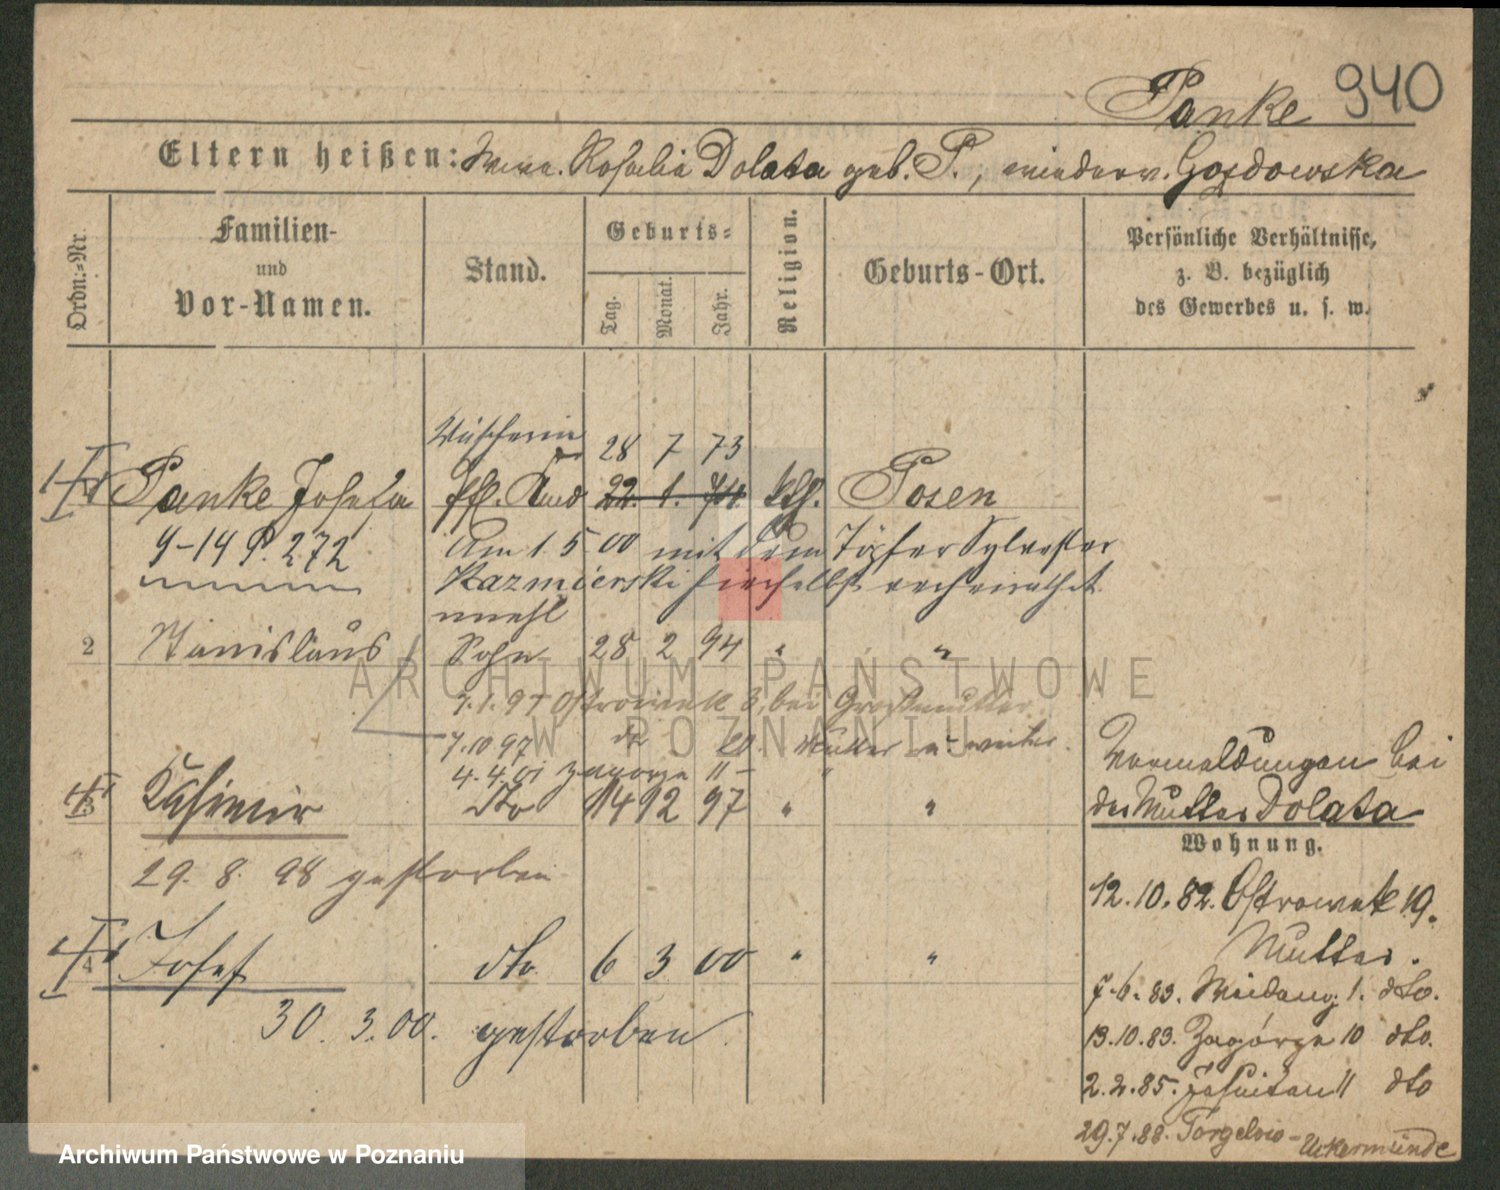 Panke 940
Eltern heißen: Wwe. Rosalie Dolata geb. P., wiederv. Gozdowska
Ordn.-Nr.
Familien-
und
Vor-Namen.
Stand.
Geburts-
Tag.
Monat.
Jahr.
Religion.
Geburts-Ort.
Persönliche Verhältnisse,
z. B. bezüglich
des Gewerbes u. s. w.
Wäscherin 28 7 73
1 Panke Josefa 22. 1. 74. kth. Posen
9-14 P. 272 Am 1. 5 00 mit dem Töpfer Sylvester
Kazmierski hierselbst verheirathet
unehl
2 Stanislaus Sohn 28 2 94 " "
7.1.97 Ostrowek 3, bei Großmutter
7.10 97 Mutter u. weiter.
4.4.01 Zagorze 11
Vormeldungen bei
der Mutter Dolata
3 Kasimir dto 14 12 97 " "
Wohnung.
29. 8. 98 gestorben
12.10.82. Ostrowek 19.
Mutter.
4 Josef dto. 6 3 00 " "
7.6.83. Weideng. 1. dto.
30. 3.00. gestorben
13.10.83. Zagórze 10 dto.
2.2.85. Jesuiten 11 dto
29.7.88. Torgelow-Uckermünde
ARCHIWUM PAŃSTWOWE
W POZNANIU
Archiwum Państwowe w Poznaniu